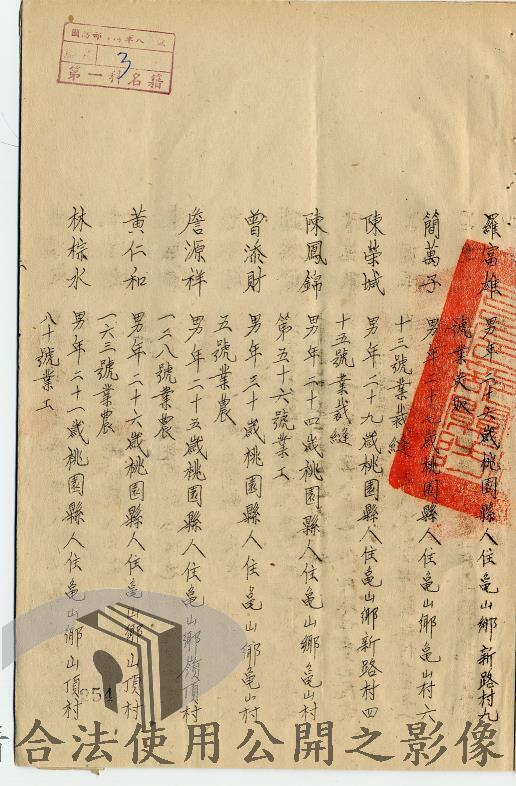 羅富雄　男年二十六歲桃園縣人住龜山鄉新路村九
號業
簡萬子　男年二十七歲桃園縣人住龜山鄉龜山村六
十三號業裁縫
陳榮城　男年二十九歲桃園縣人住龜山鄉新路村四
十五號業裁縫
陳鳳錦　男年二十四歲桃園縣人住龜山鄉龜山村
第五十六號業工
曾添財　男年三十歲桃園縣人住龜山鄉龜山村
五號業農
詹源祥　男年二十五歲桃園縣人住龜山鄉嶺頂村
一二八號業農
黃仁和　男年二十六歲桃園縣人住龜山鄉山頂村
一六三號業農
林棕水　男年二十一歲桃園縣人住龜山鄉山頂村
八十號業工
國防部
3
第一科名籍
254
合法使用公開之影像